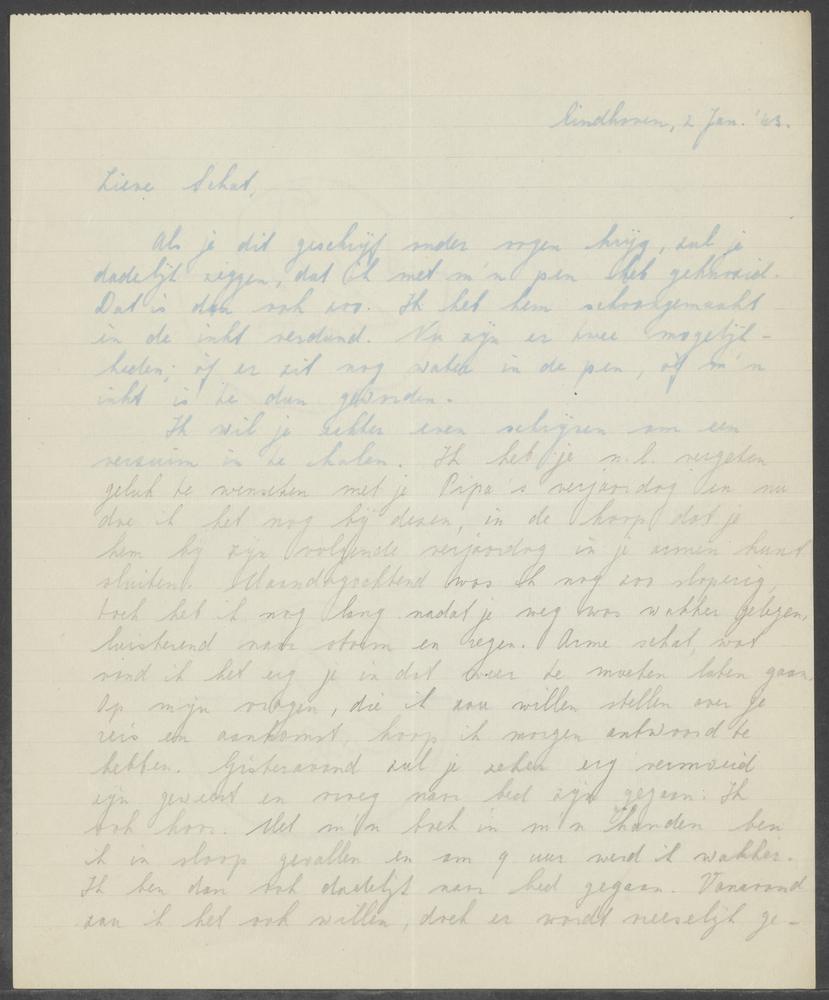 Eindhoven, 2 Jan. '43.
Lieve Schat,
Als je dit geschrijf onder oogen krijg, zul je
dadelijk zeggen, dat ik met m'n pen heb geknoeid.
Dat is dan ook zoo. Ik heb hem schoongemaakt
en de inkt verdund. Nu zijn er twee mogelijk-
heden; óf er zit nog water in de pen, óf m'n
inkt is te dun geworden.
Ik wil je echter even schrijven om een
verzuim in te halen. Ik heb je n.l. vergeten
geluk te wenschen met je Pipa's verjaardag en nu
doe ik het nog bij dezen, in de hoop dat je
hem bij zijn volgende verjaardag in je armen kunt
sluiten. Maandagochtend was ik nog zoo slaperig,
toch heb ik nog lang nadat je weg was wakker gelegen,
luisterend naar storm en regen. Arme schat, wat
vind ik het erg je in dat weer te moeten laten gaan.
Op mijn vragen, die ik zou willen stellen over je
reis en aankomst, hoop ik morgen antwoord te
hebben. Gisteravond zul je zeker erg vermoeid
zijn geweest en vroeg naar bed zijn gegaan. Ik
ook hoor. Met m'n boek in m'n handen ben
ik in slaap gevallen en om 9 uur werd ik wakker.
Ik ben dan ook dadelijk naar bed gegaan. Vanavond
zou ik het ook willen, doch er wordt vreeselijk ge-